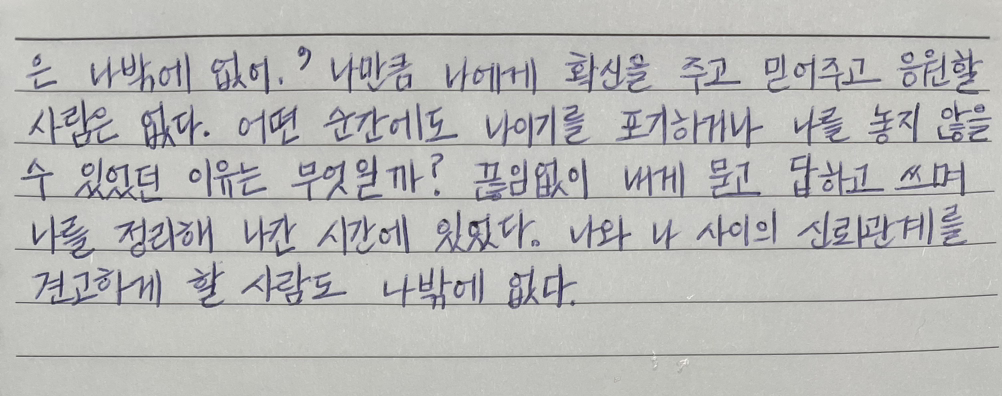 은 나밖에 없어.’ 나만큼 나에게 확신을 주고 믿어주고 응원할
사람은 없다. 어떤 순간에도 나이기를 포기하거나 나를 놓지 않을
수 있었던 이유는 무엇일까? 끊임없이 내게 묻고 답하고 쓰며
나를 정리해 나간 시간에 있었다. 나와 나 사이의 신뢰관계를
견고하게 할 사람도 나밖에 없다.